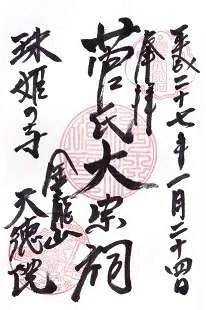 平成二十七年一月二十四日
奉拝
菅氏大宗祠
金龍山
珠姫の寺
天徳院